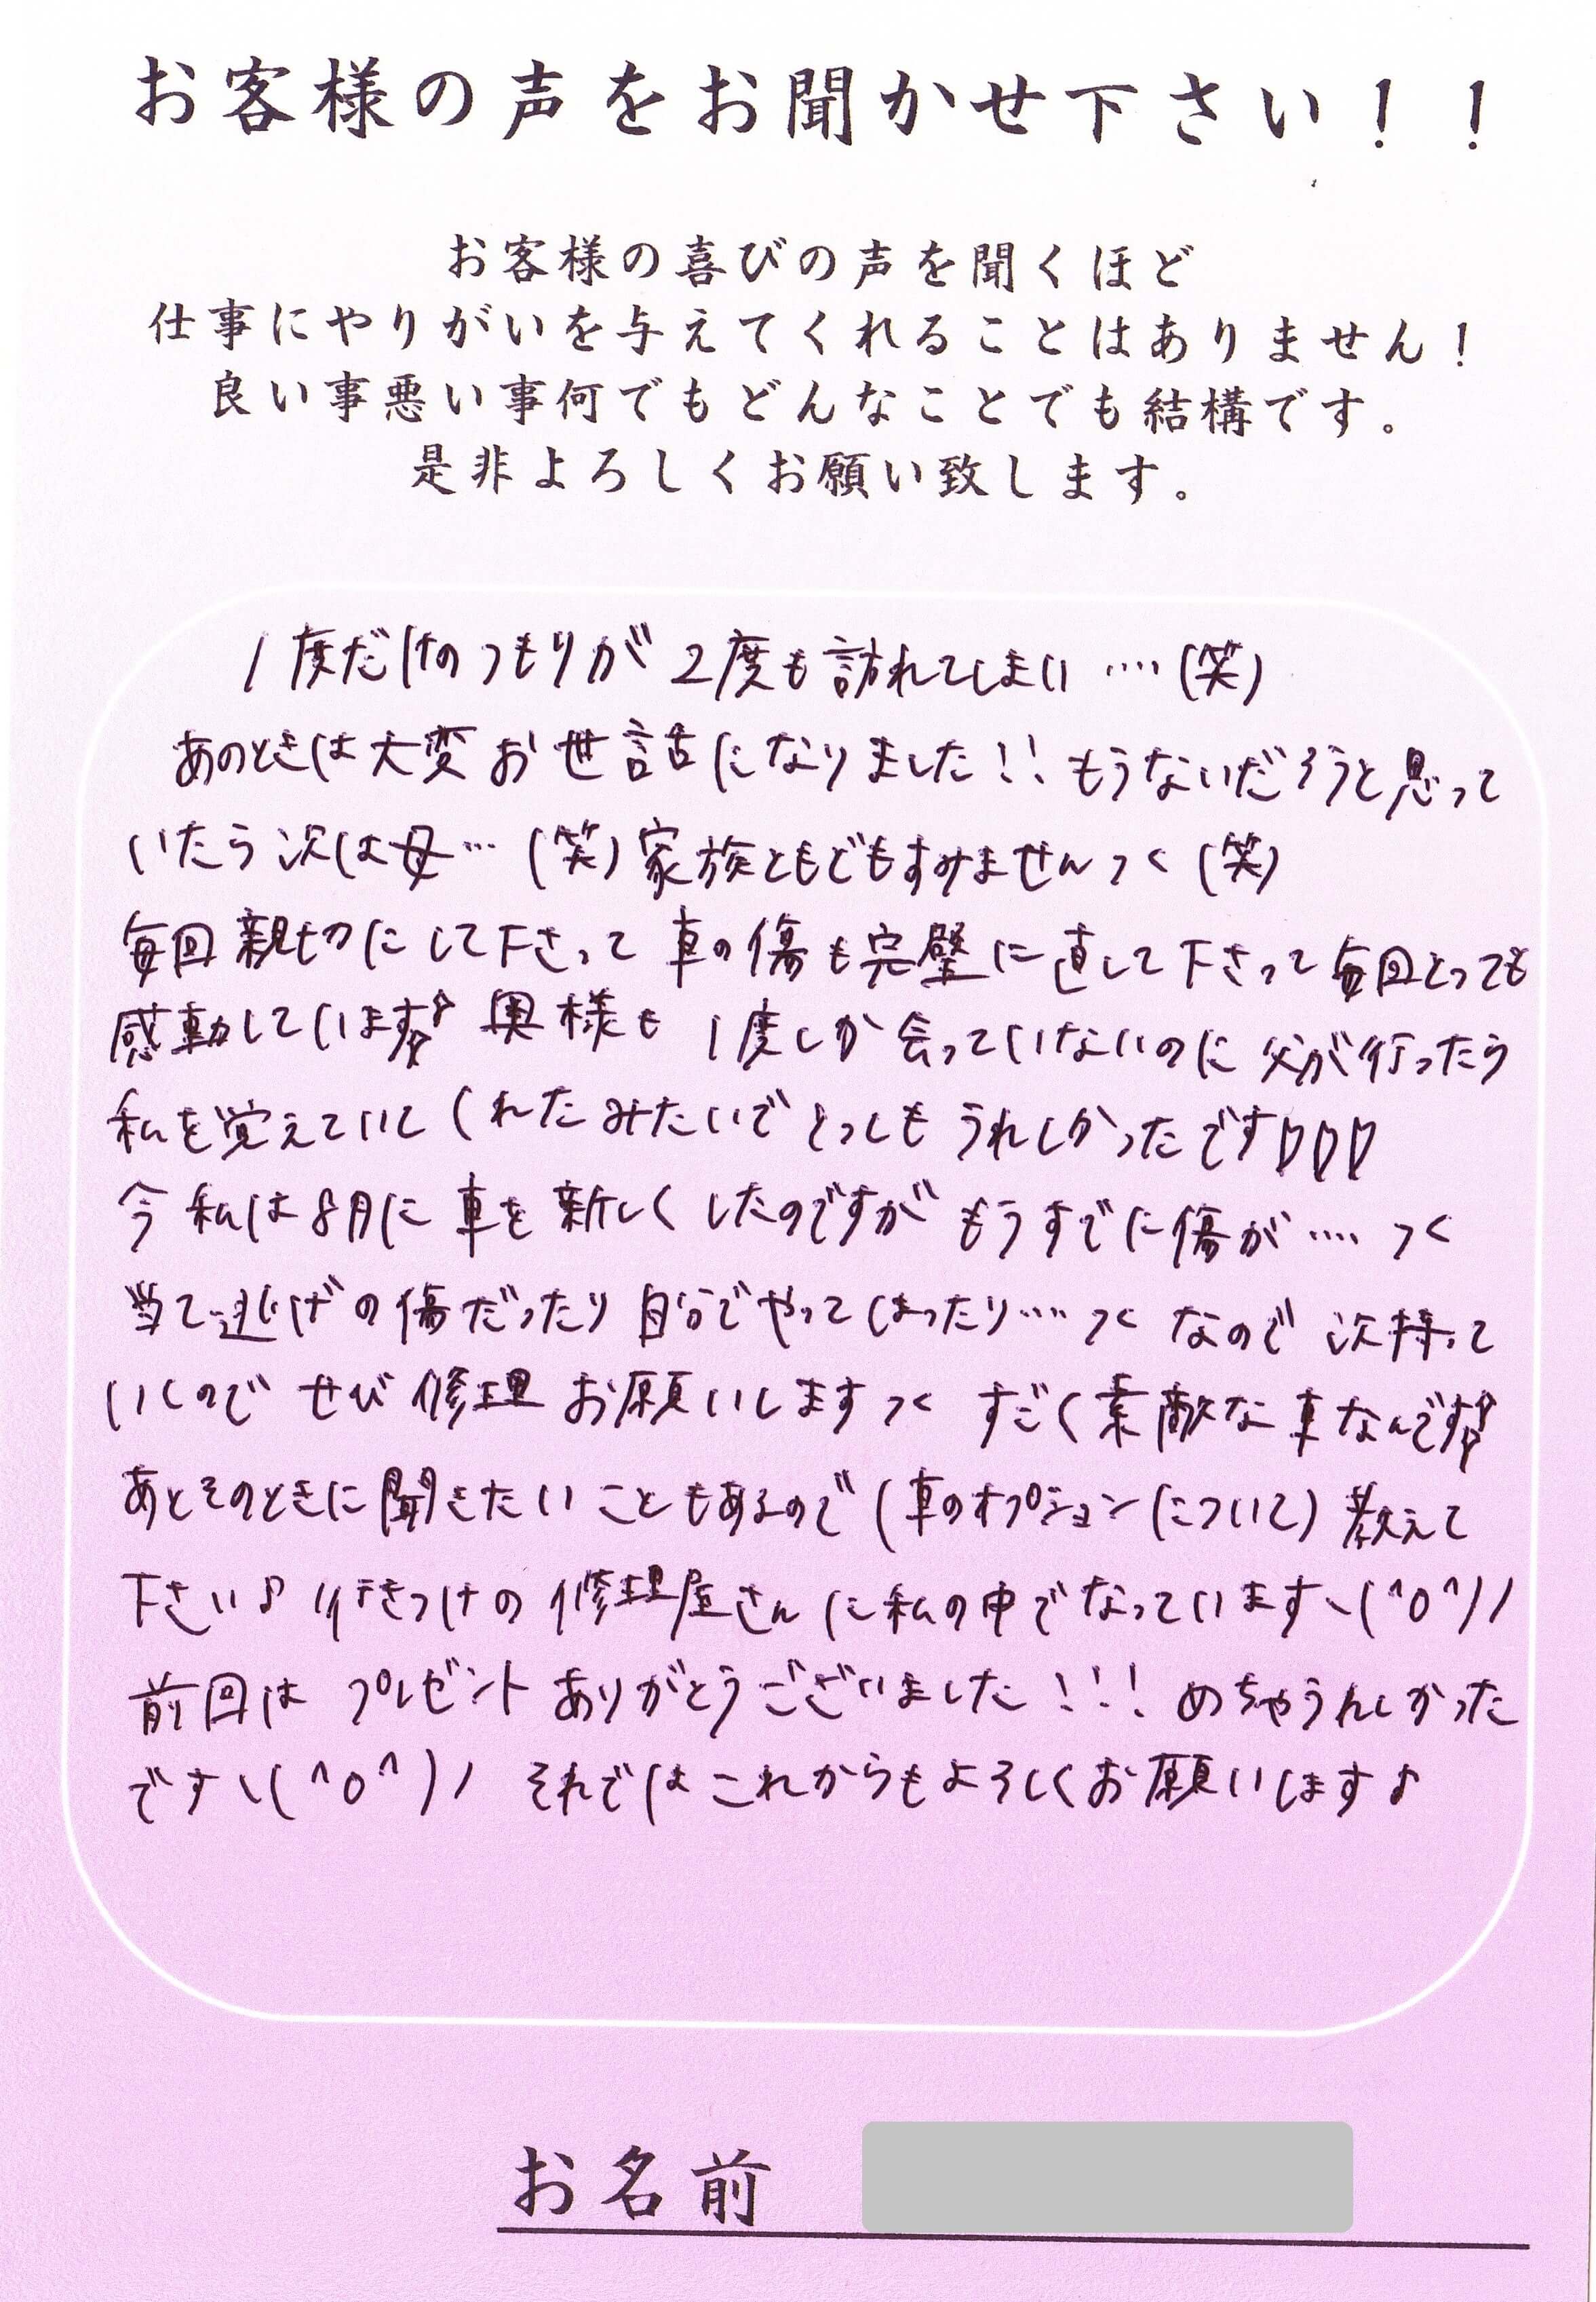 お客様の声をお聞かせ下さい！！
お客様の喜びの声を聞くほど
仕事にやりがいを与えてくれることはありません！
良い事悪い事何でもどんなことでも結構です。
是非よろしくお願い致します。
1度だけのつもりが2度も訪れてしまい‥‥(笑)
あのときは大変お世話になりました!! もうないだろうと思って
いたら次は母…(笑)家族ともどもすみません＞＜(笑)
毎回親切にして下さって車の傷も完璧に直して下さって毎回とっても
感動しています♪ 奥様も1度しか会っていないのに父が行ったら
私を覚えていてくれたみたいでとってもうれしかったです♡♡♡
今私は8月に車を新しくしたのですがもうすでに傷が‥‥＞＜
当て逃げの傷だったり自分でやってしまったり…＞＜なので次持って
いくのでぜひ修理お願いします＞＜すごく素敵な車なんです♪
あとそのときに聞きたいこともあるので(車のオプションについて)教えて
下さい♪行きつけの修理屋さんに私の中でなっていますヽ(^o^)ノ
前回はプレゼントありがとうございました!!! めちゃうれしかった
ですヽ(^o^)ノ それではこれからもよろしくお願いします♪
お名前